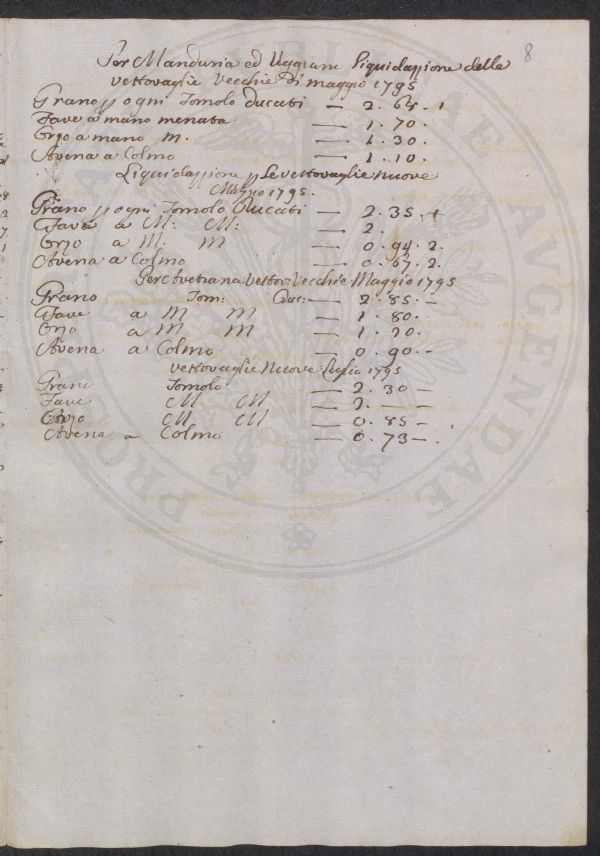 8
Per Manduria ed Uggiano Liquidazzione delle
vettovaglie Vecchie di maggio 1795
Grano p ogni Tomolo Ducati — 2. 64 - 1
Fave a mano menata — 1. 70.
Orzo a mano M. — 1. 30.
Avena a Colmo — 1. 10.
Liquidazzione p Le vettovaglie Nuove
Maggio 1795.
Grano p ogni Tomolo Ducati — 2. 35. +
Fave a M: M: — 2.
Orzo a M: M — 0. 94. 2.
Avena a Colmo — 0. 67. 2.
Per Avetrana Vettov: Vecchie Maggio 1795
Grano Tom: Duc: — 2. 85. —
Fave a M M — 1. 80.
Orzo a M M — 1. 20.
Avena a Colmo — 0. 90. -
vettovaglie Nuove Luglio 1795
Grano Tomolo. — 2. 30 —
Fave M M — 2. — —
Orzo M M — 0. 85 — .
Avena a Colmo — 0. 73 — .
PRO AVGENDAE